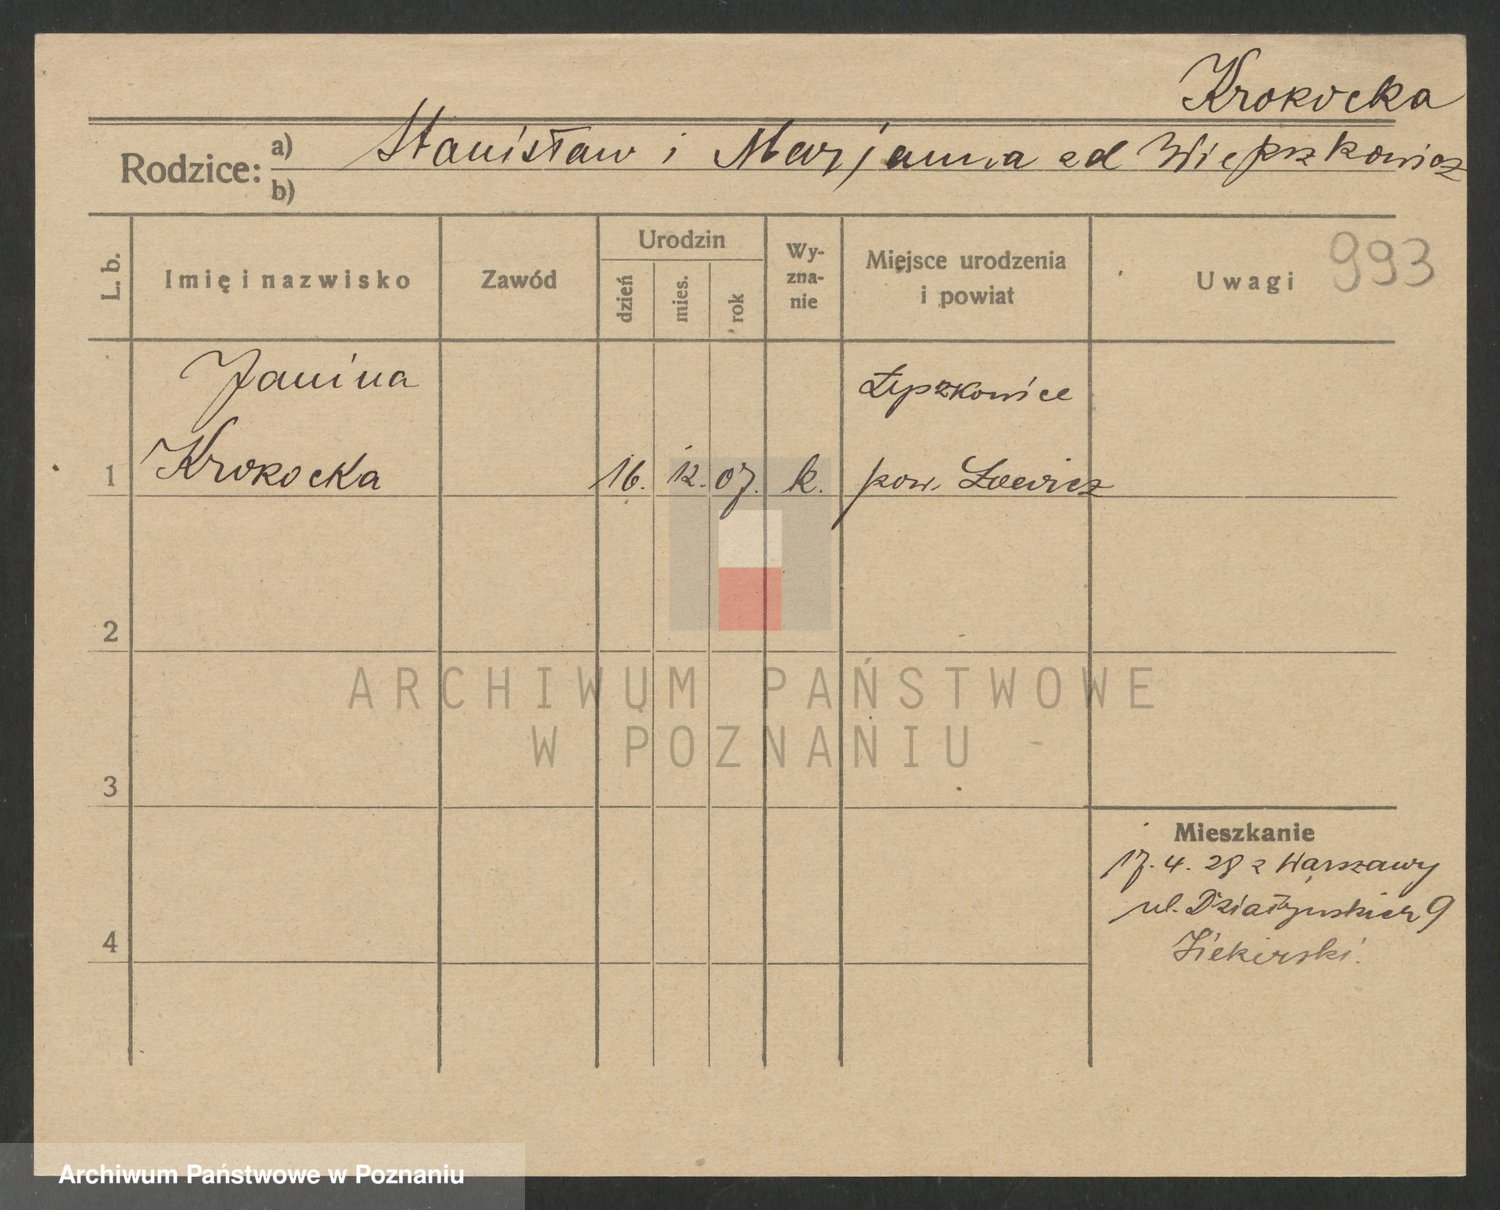 Krokocka
Rodzice: a) Stanisław i Marjanna zd Wiepszkowicz
b)
L. b. Imię i nazwisko Zawód Urodzin dzień mies. rok Wy-zna-nie Miejsce urodzenia i powiat Uwagi 993
Janina Łyszkowice
1 Krokocka 16. 12. 07. k. pow. Łowicz
2
3
4
Mieszkanie
17. 4. 28 z Warszawy
ul. Działyńskich 9
ARCHIWUM PAŃSTWOWE
W POZNANIU
Archiwum Państwowe w Poznaniu